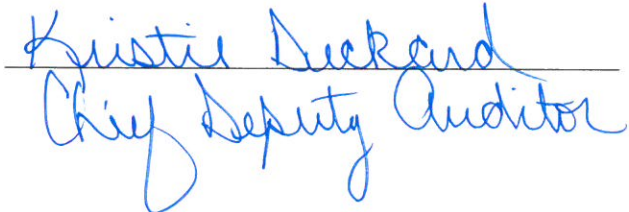 Kristie Deckard
Chief Deputy Auditor